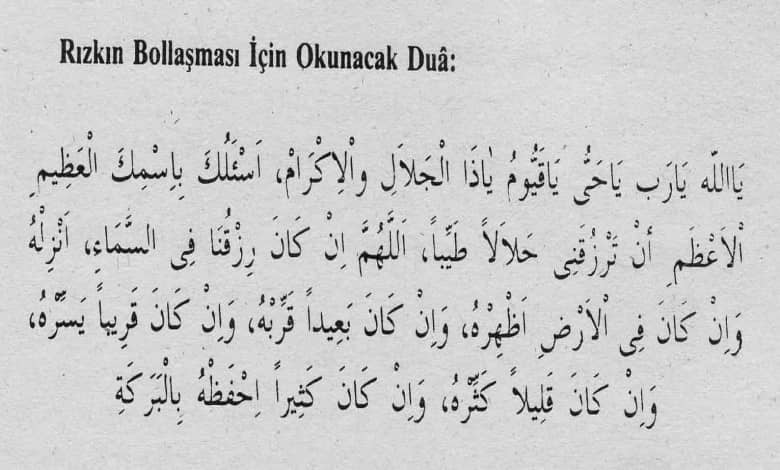 Rızkın Bollaşması İçin Okunacak Duâ:
يَااَللّه يَارَب يَاحَىُّ يَاقَيُّومُ يٰاذَا الْجَلاَلِ واْلاِكْرَامْ، اَسْئَلُكَ بِاِسْمِكَ الْعَظِيمِ
اْلاَعْظَمِ أنْ تَرْزُقَنِى حَلاَلاً طَيِّباً، اَللَّهُمَّ اِنْ كَانَ رِزْقُنَا فِى السَّمَاءِ، اَنْزِلْهُ
وَاِنْ كَانَ فِى اْلاَرْضِ اَظْهِرْهُ، وَاِنْ كَانَ بَعِيداً قَرِّبْهُ، وَاِنْ كَانَ قَرِيباً يَسِّرْهُ،
وَاِنْ كَانَ قَلِيلاً كَثِّرْهُ، وَاِنْ كَانَ كَثِيراً اِحْفَظْهُ بِالْبَرَكَةِ